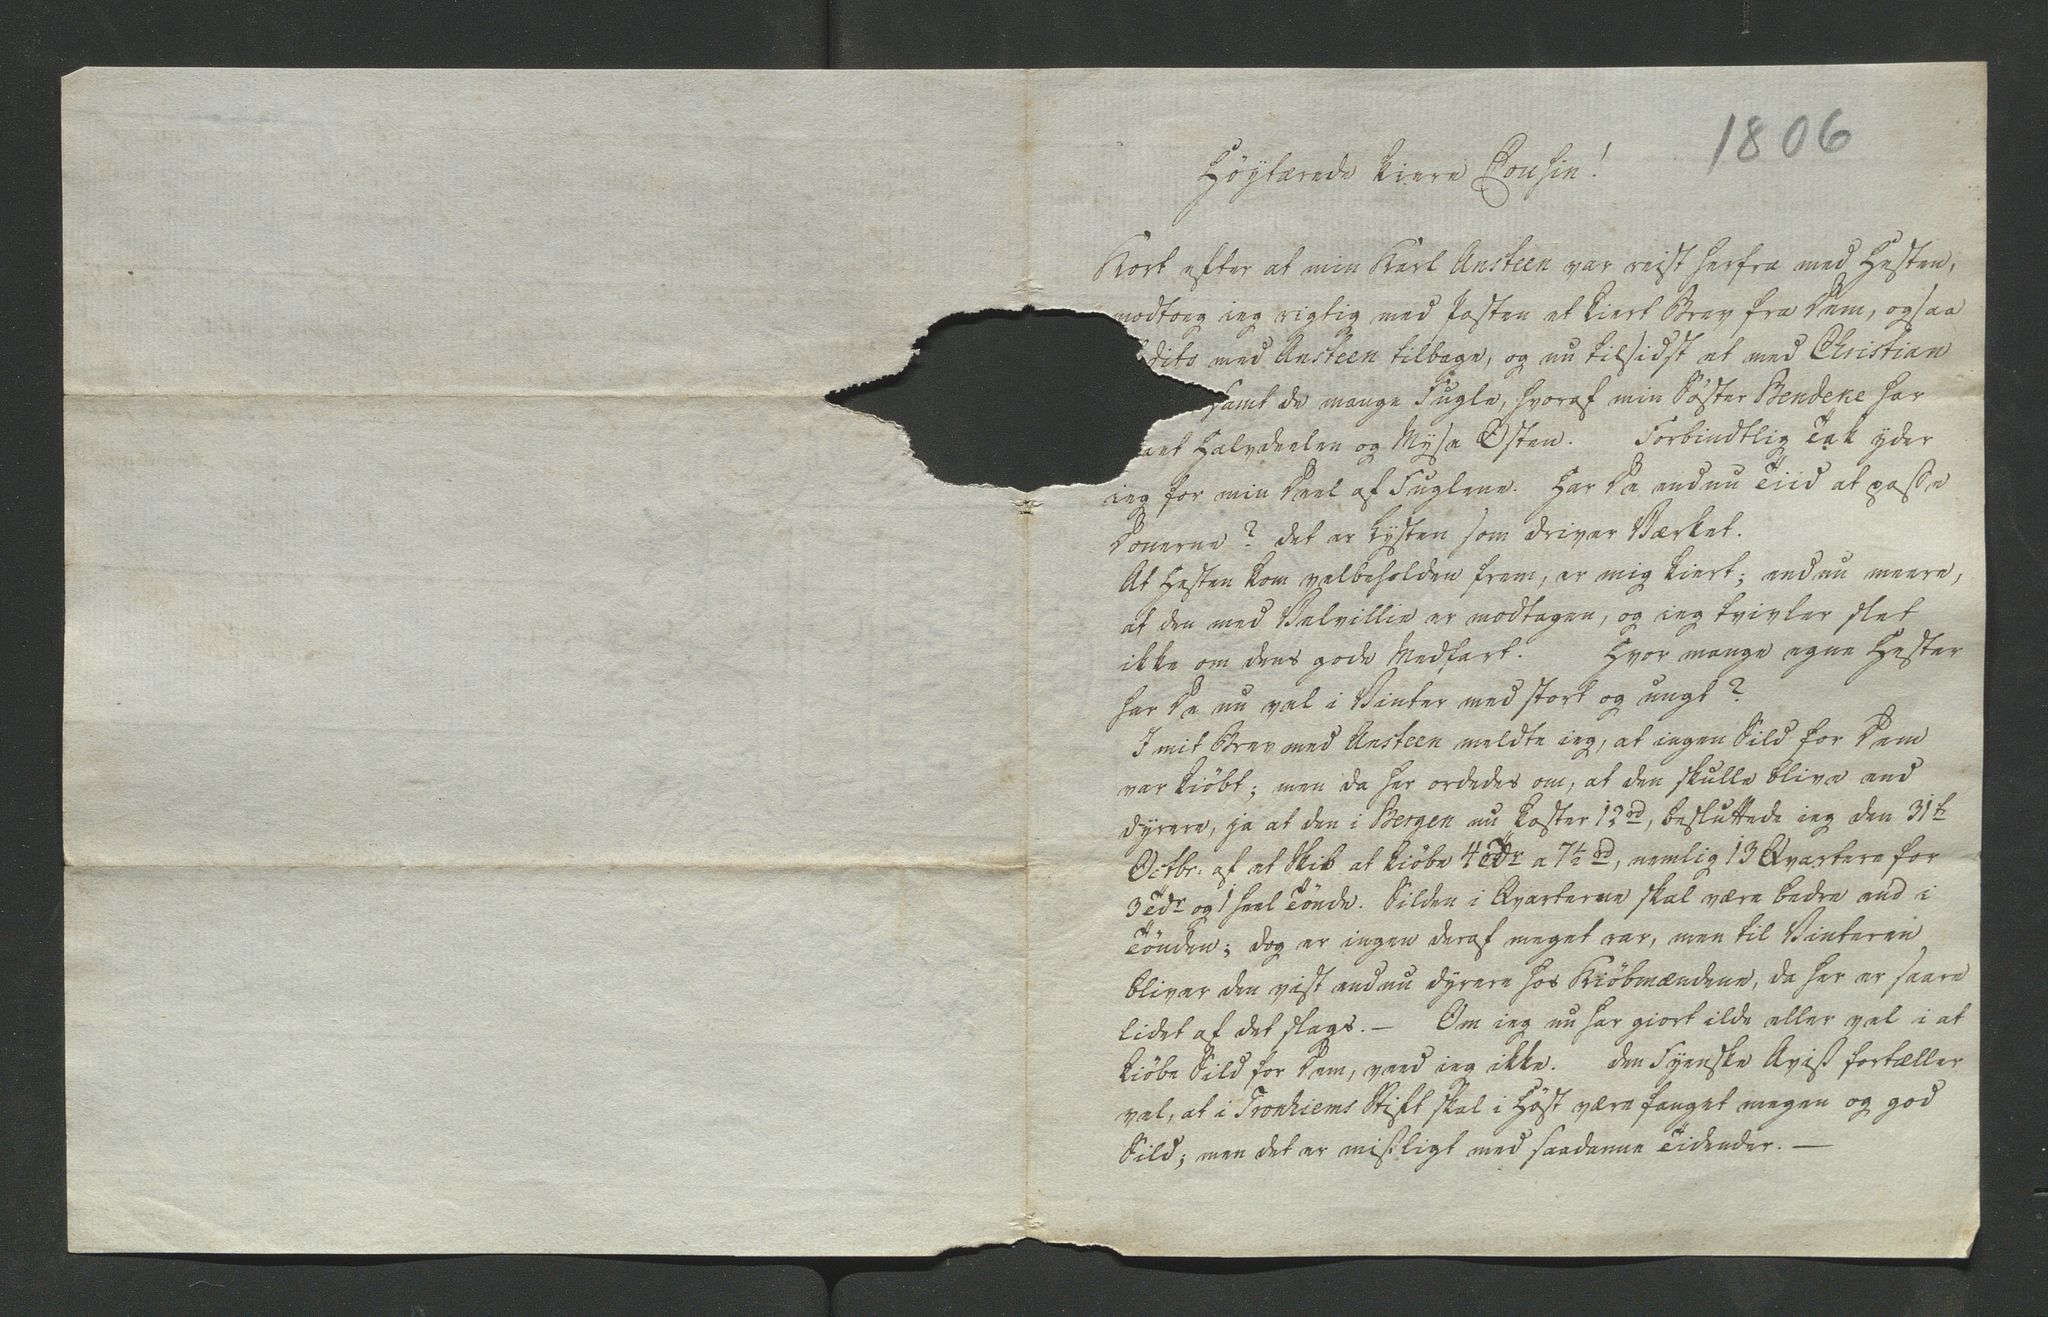 1806
Høÿtærede kiere Cousin!
Kort efter at min Karl Ansteen var reist herfra med Hesten,
modtoeg ieg rigtig med Posten et kiert Brev fra Dem, ogsaa
dito med Ansteen tilbage, og nu tilsidst et med Christian
samt de mange Fugle, hvoraf min Søster Bendeke har
Halvdeelen og Mysa Osten. Forbindtlig Tak yder
ieg for min Deel af Fuglene. Har De endnu Tiid at passe
Donerne? det er Lysten som driver Værket.
At Hesten kom velbeholden frem, er mig kiert; endnu meere,
at den med Velvillie er modtagen, og ieg tvivler slet
ikke om dens gode Medfart. Hvor mange egne Heste
har De nu vel i Vinter med stort og ungt?
I mit Brev med Ansteen meldte ieg, at ingen Sild for Dem
var kiöbt; men da her ordedes om, at den skulle blive end
dyrere, ja at den i Bergen nu koster 12 rd, besluttede ieg den 31te
Octbr. af et Skib at kiöbe 4 Tdr a 7½ rd, nemlig 13 Qvartere for
3 Tdr og 1 heel Tönde. Silden i Qvarterne skal være bedre end i
Tönden; dog er ingen deraf meget rar, men til Vinteren
bliver den vist endnu dyrere hos Kiöbmændene, da her er saare
lidet af det slags. — Om ieg nu har giort ilde eller vel i at
kiöbe Sild for Dem, veed ieg ikke. den Fyenske Aviß fortæller
vel, at i Tronhiems Stift skal i Höst være fanget megen og god
Sild; men det er mißligt med saadanne Tidender. —